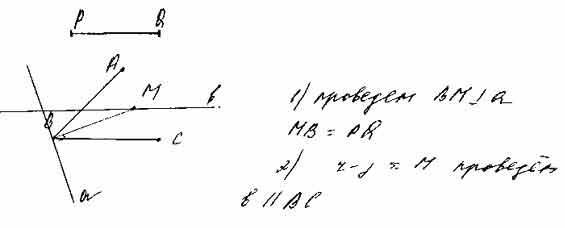 P Q
A
M в
B
C
a
1) проведем BM ⊥ a
MB = PQ
2) ч-з т. M проведём
в || BC